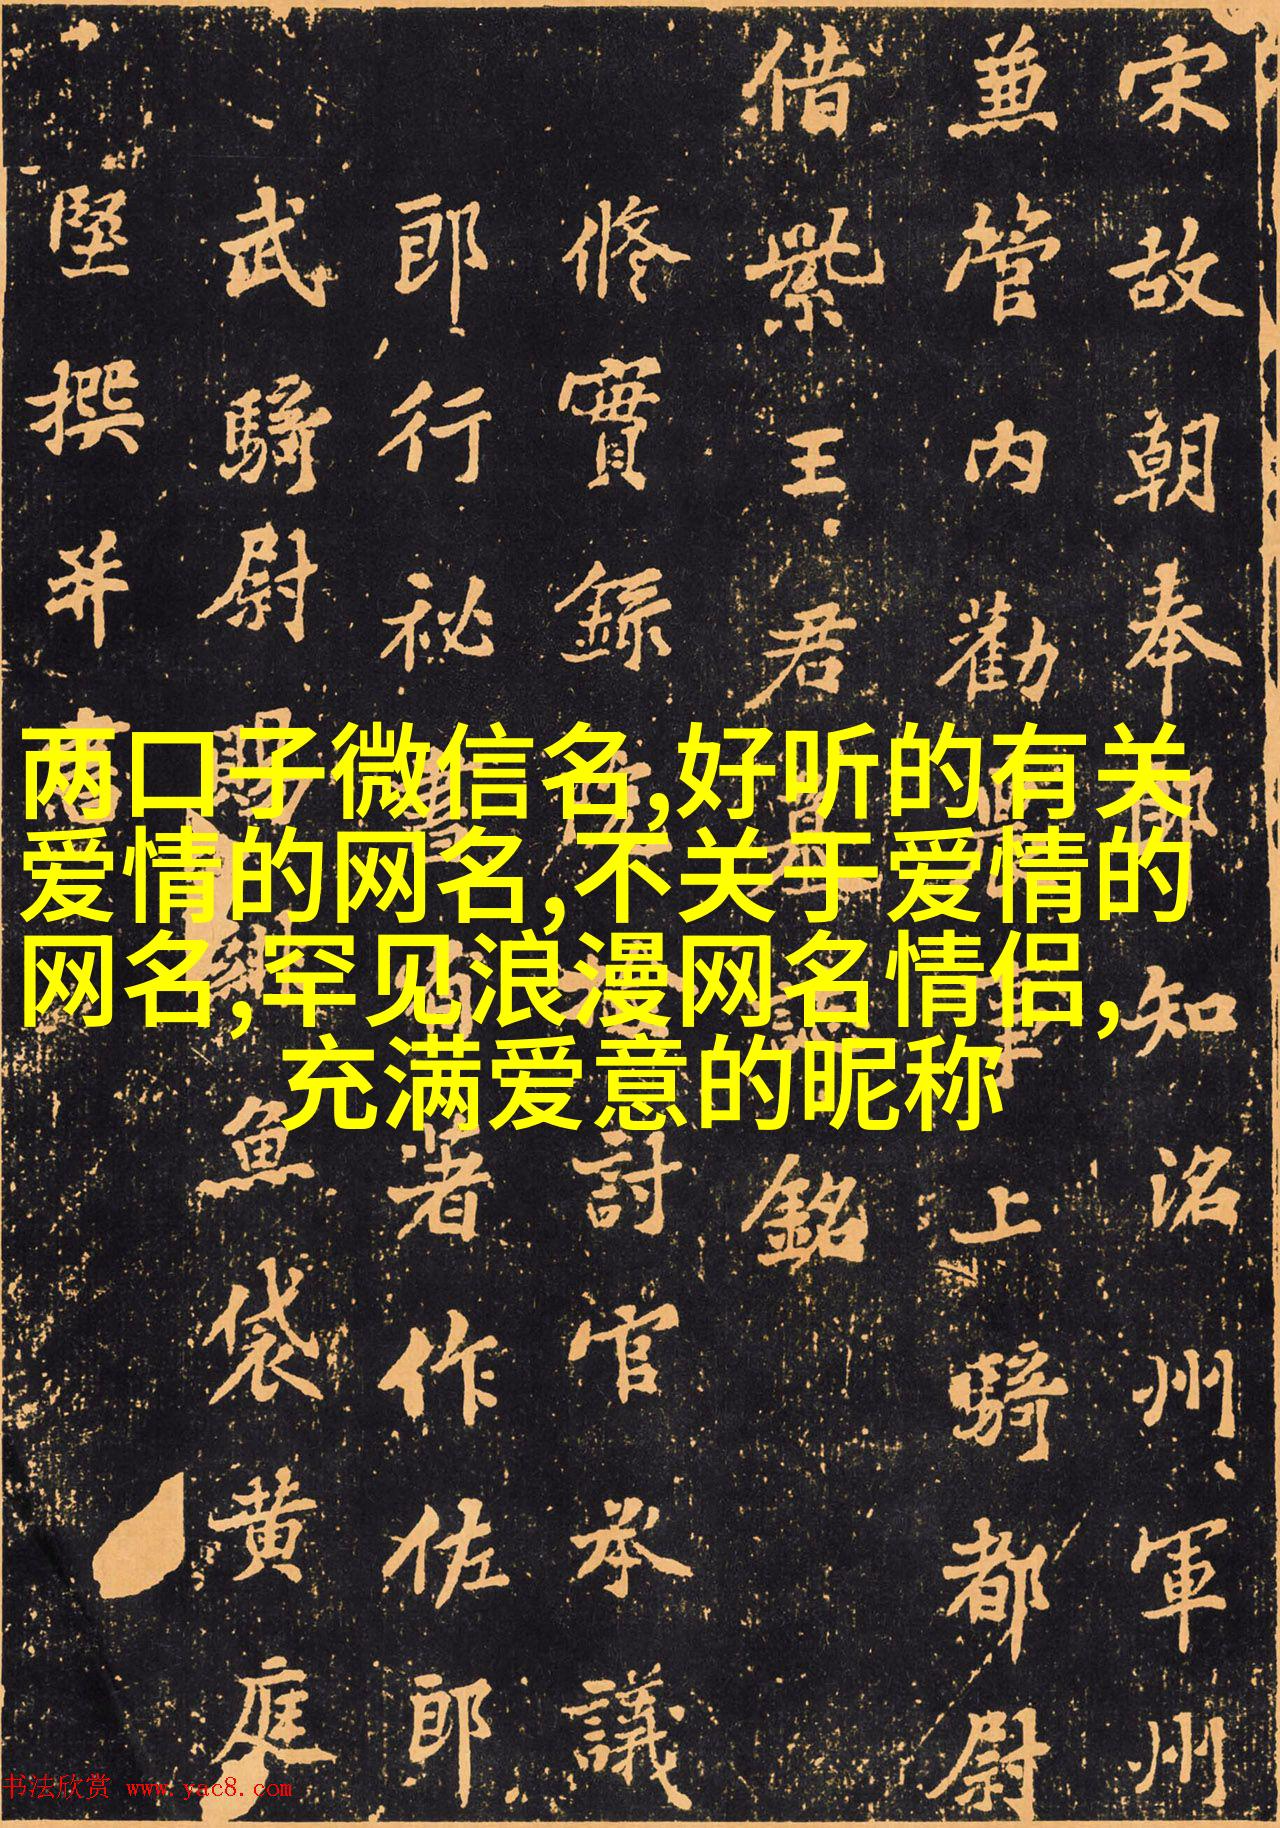 宋故朝奉郎知洺州軍州
兼管内勸農事上騎都尉
借紫王君墓誌銘
修實錄院檢討官承議
郎行祕書省著作佐郎
武騎尉賜緋魚袋黃庭
堅撰并書
两口子微信名,好听的有关
爱情的网名,不关于爱情的
网名,罕见浪漫网名情侣,
充满爱意的昵称
书法欣赏 www.yac8.com